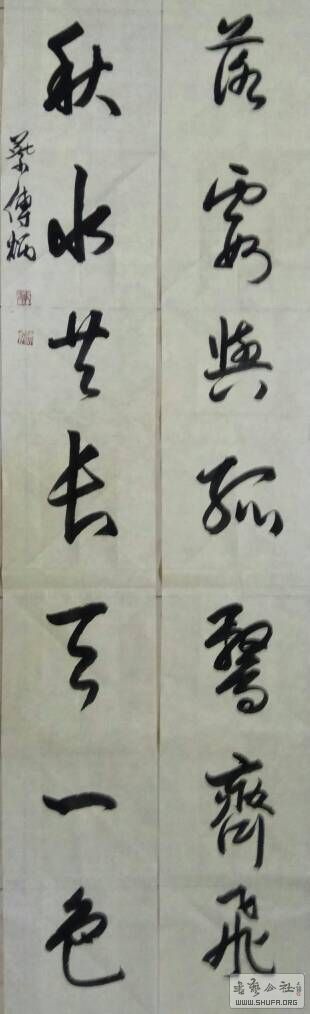 落霞與孤鶩齊飛
秋水共長天一色
葉傳炳
書藝公社
WWW.SHUFA.ORG